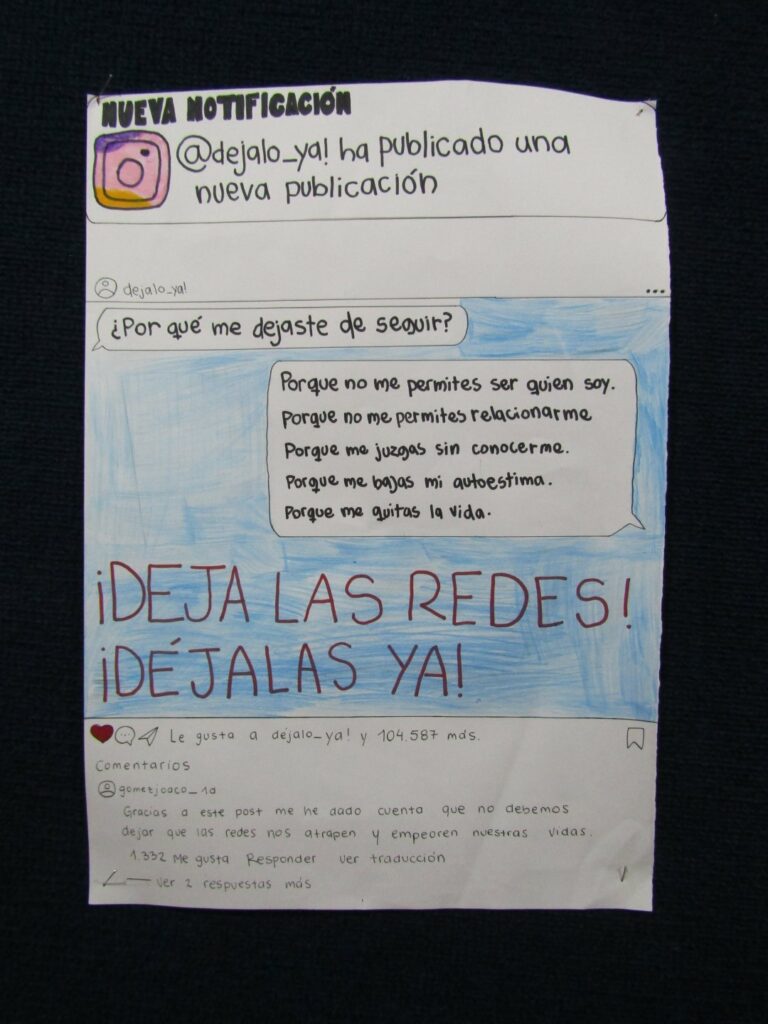 NUEVA NOTIFICACIÓN
@dejalo_ya! ha publicado una
nueva publicación
dejalo_ya!
¿Por qué me dejaste de seguir?
Porque no me permites ser quien soy.
Porque no me permites relacionarme
Porque me juzgas sin conocerme.
Porque me bajas mi autoestima.
Porque me quitas la vida.
¡DEJA LAS REDES!
¡DÉJALAS YA!
Le gusta a déjalo_ya! y 104.587 más.
Comentarios
gometjoaco_ 1d
Gracias a este post me he dado cuenta que no debemos
dejar que las redes nos atrapen y empeoren nuestras vidas.
1.332 Me gusta Responder Ver traducción
Ver 2 respuestas más